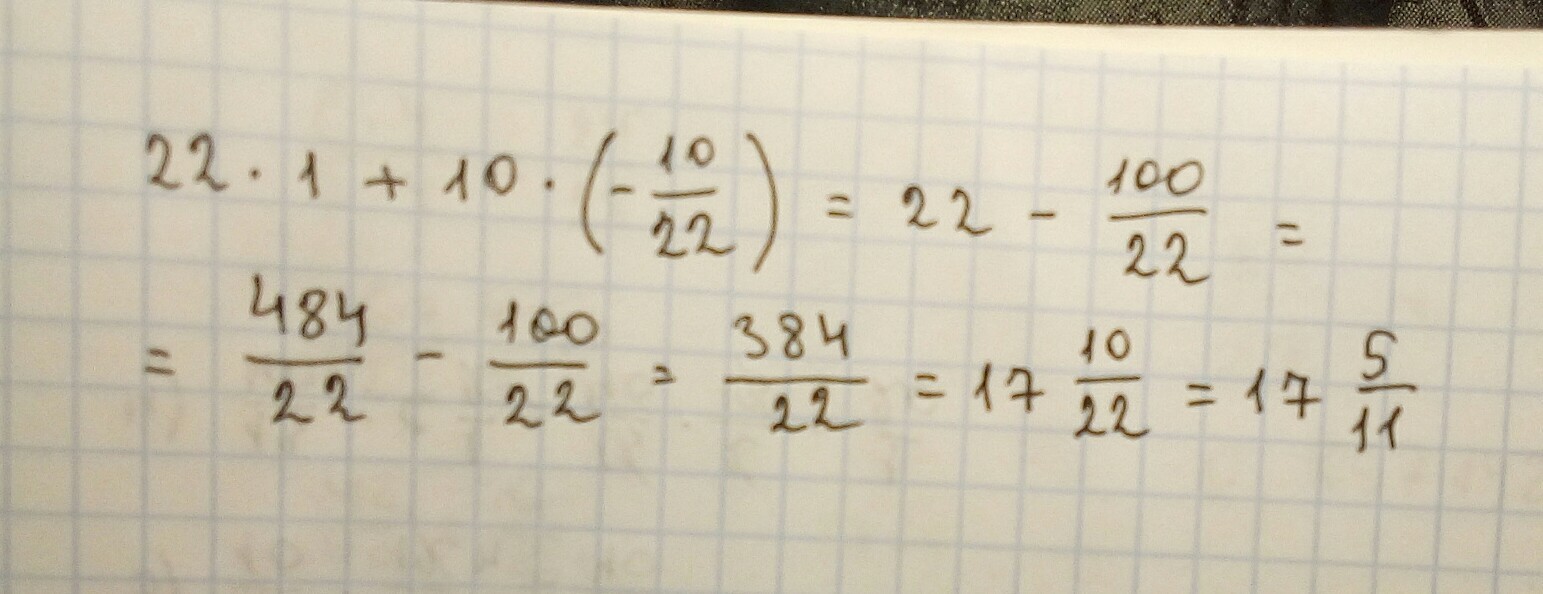 22 · 1 + 10 · (- 10/22) = 22 - 100/22 =
= 484/22 - 100/22 = 384/22 = 17 10/22 = 17 5/11